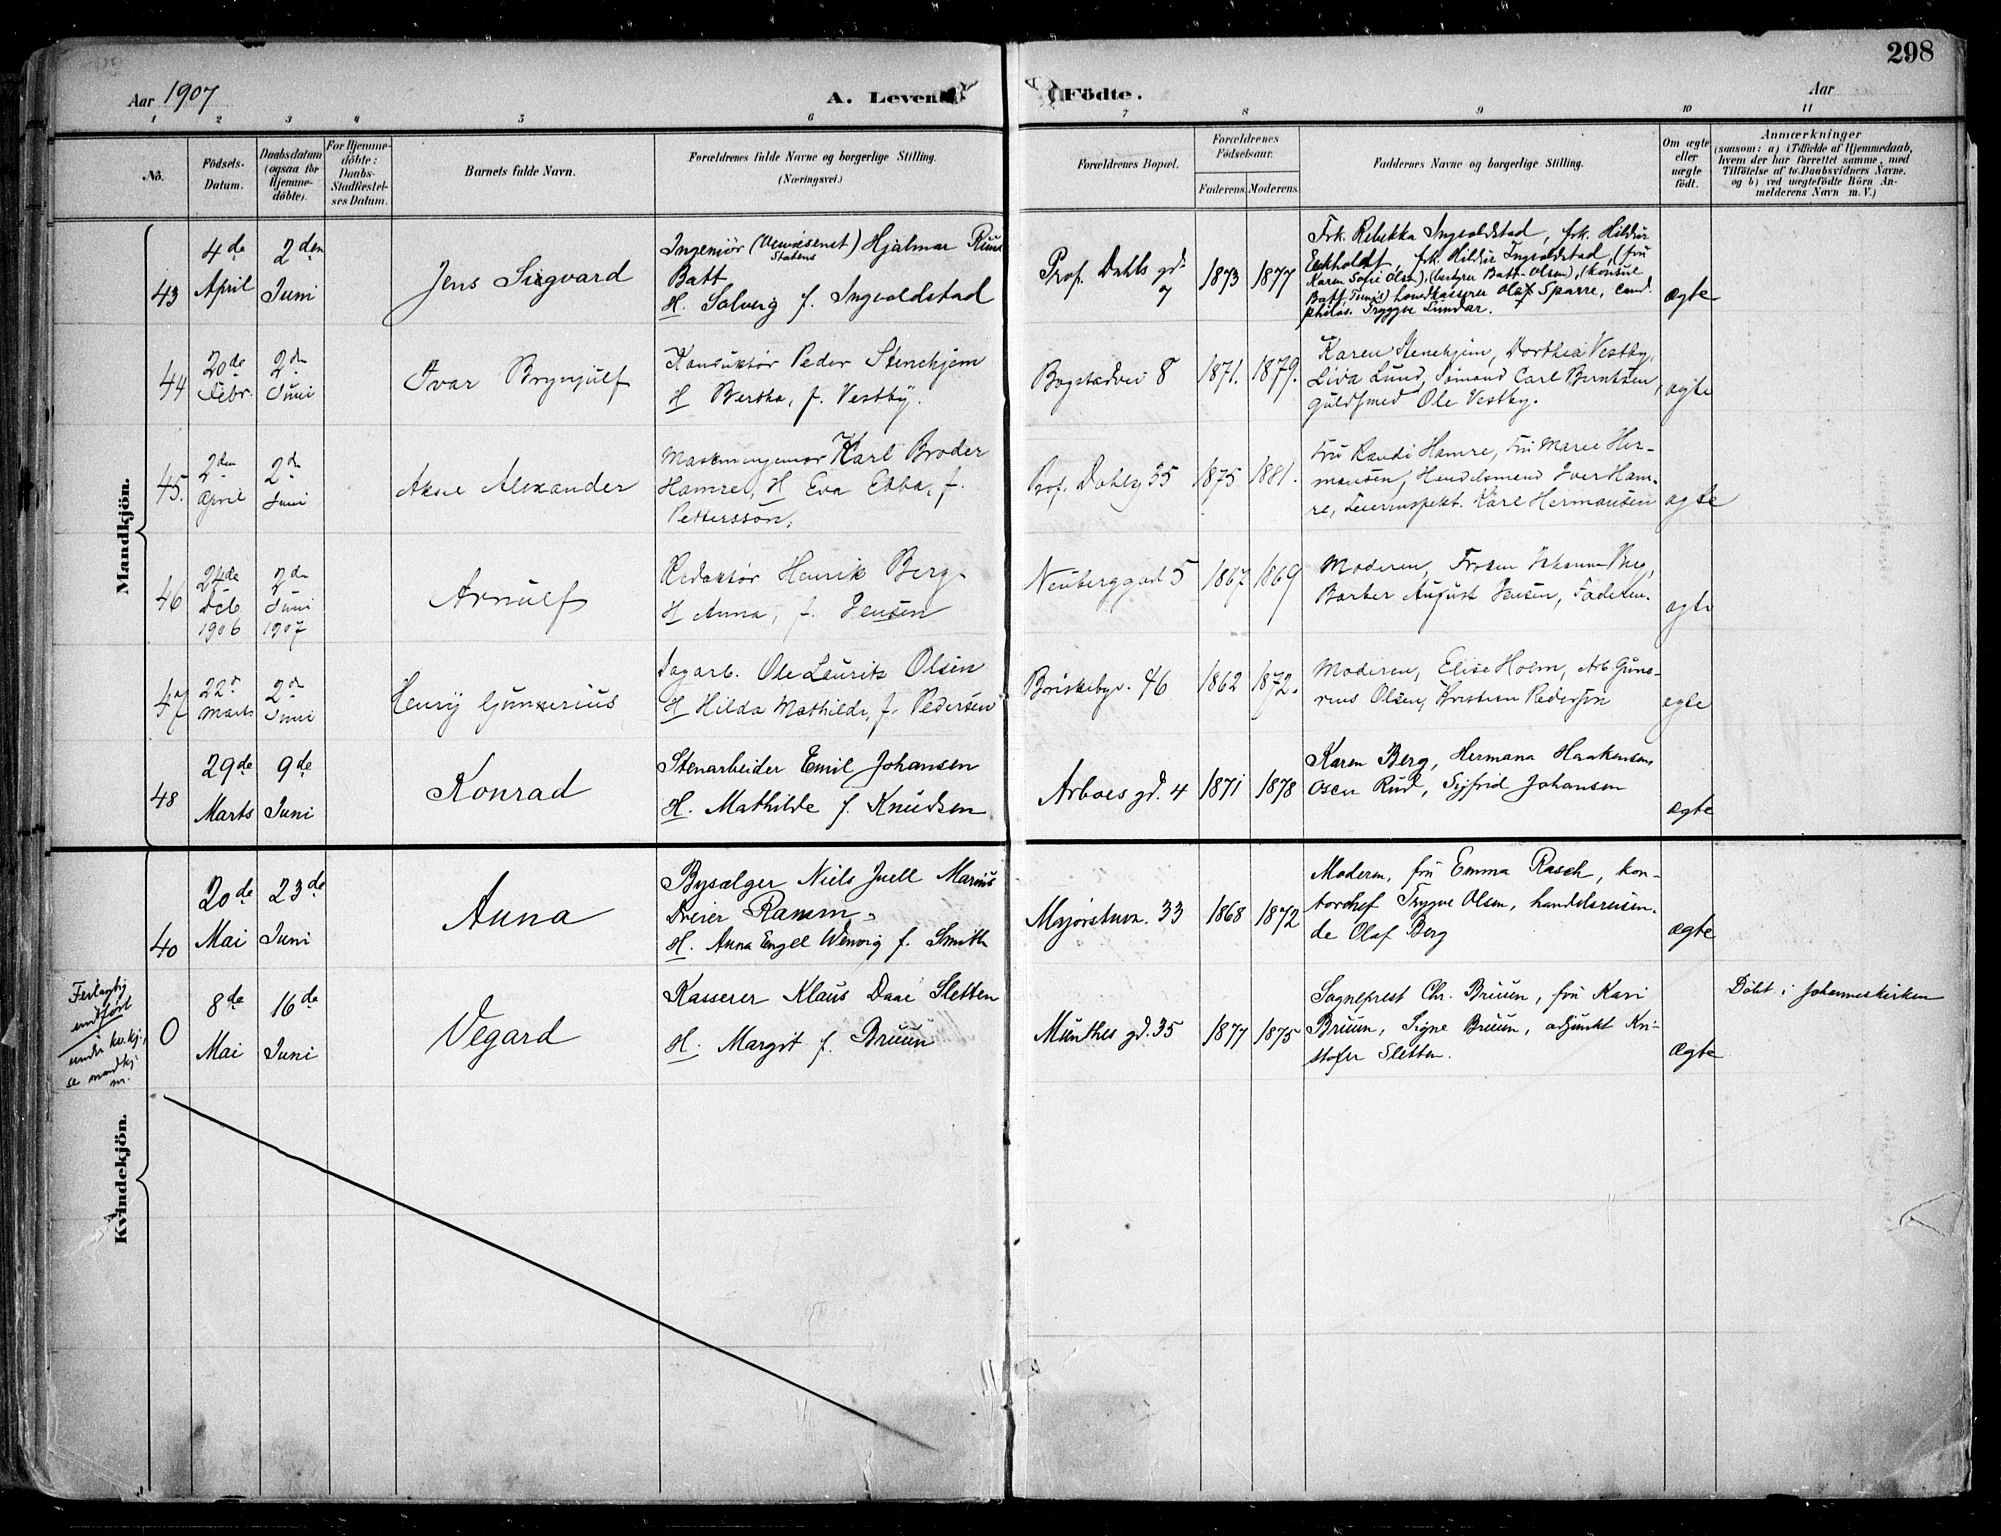 298
Aar 1907
A. Levende Födte.
Aar
1 2 3 4 5 6 7 8 9 10 11
No.
Födsels-
Datum.
Daabsdatum
(ogsaa for
Hjemme-
döbte).
For Hjemme-
döbte:
Daabs-
Stadfæstel-
ses Datum.
Barnets fulde Navn.
Forældrenes fulde Navne og borgerlige Stilling.
(Næringsvei.)
Forældrenes Bopæl.
Forældrenes
Födselsaar.
Faderens. Moderens.
Faddernes Navne og borgerlige Stilling.
Om ægte
eller
uægte
födt.
Anmærkninger
(saasom: a) i Tilfælde af Hjemmedaab,
hvem der har forrettet samme, med
Tilföielse af to Daabsvidners Navne.
og b) ved uægtefödte Börn An-
melderens Navn m. V.)
Mandkjön.
43
4de
April
2den
Juni
Jens Sigvard
Ingeniör Hjalmar
Statens
Batt
H. Solveig f. Ingvoldstad
Prof. Dahls gd.
7
1873
1877
Frk. Rebekka Ingvoldstad, frk. Hildur
Eckholdt, frk. Hildur Ingvoldstad, (fru
Karen Sofie Olsen), Batt-Olsen), (konsul
Batt, Tunis) Olaf Sparre, cand.
philos. Trygve Sundar.
ægte
44
20de
Febr.
2den
Juni
Ivar Brynjulf
Konduktör Peder Stenehjem
H Bertha, f. Vestby.
Bogstadvei 8
1871.
1879.
Karen Stenehjem, Dorthea Vestby,
Lund, Carl Berntsen,
guldsmed Ole Vestby.
ægte
45.
2den
April
2den
Juni
Alexander
Maskiningeniör Karl Broder
Hamre, H Eva Ebba, f.
Pettersson.
Prof. Dahlsg 35
1875
1881.
Fru Randi Hamre, Fru Marie Her-
mansen, Handelsmand Iver Ham-
re, Karl Hermansen
ægte
46
24de
Dcb
1906
2den
Juni
1907
Arnulf
Redaktör Henrik Berg
H Anna, f. Jensen
Neuberggad 5
1867
1869
Moderen, Fröken Johanne Berg,
Barber August Jensen, Faderen.
ægte
47
22de
Marts
2den
Juni
Henry Gunerius
Dagarb. Ole Laurits Olsen
H Hilda Mathilde, f. Pedersen
Briskebyv. 46
1862
1872.
Moderen, Elise Holm, Arb. Gune-
rius Olsen, Kristian Pedersen
egte
48
29de
Marts
9de
Juni
Konrad
Stenarbeider Emil Johansen
H. Mathilde f. Knudsen
Arboes gd. 4
1871
1878
Karen Berg, Hermana Haakensen
Oscar Rud, Sigfrid Johansen
ægte
Kvindekjön.
40
20de
Mai
23de
Juni
Anna
Bysælger Niels Juell Marius
Dreier Ramm
H. Anna Engell Wenvig f. Smith
Majorstuvn. 33
1868
1872
Moderen, fru Emma Rasch, kon-
torchef Trygve Olsen, handelsreisen-
de Olaf Berg
ægte
Feilagtig
indført
under kv.kj,
se mandkj
nr.
0
8de
Mai
16de
Juni
Vegard
Kasserer Klaus Daae Sletten
H. Margit f. Bruun
Munthes gd. 35
1877
1875
Sogneprest Chr. Bruun, fru Kari
Bruun, Signe Bruun, adjunkt Kri-
stofer Sletten.
Ægte
Döbt i Johanneskirken